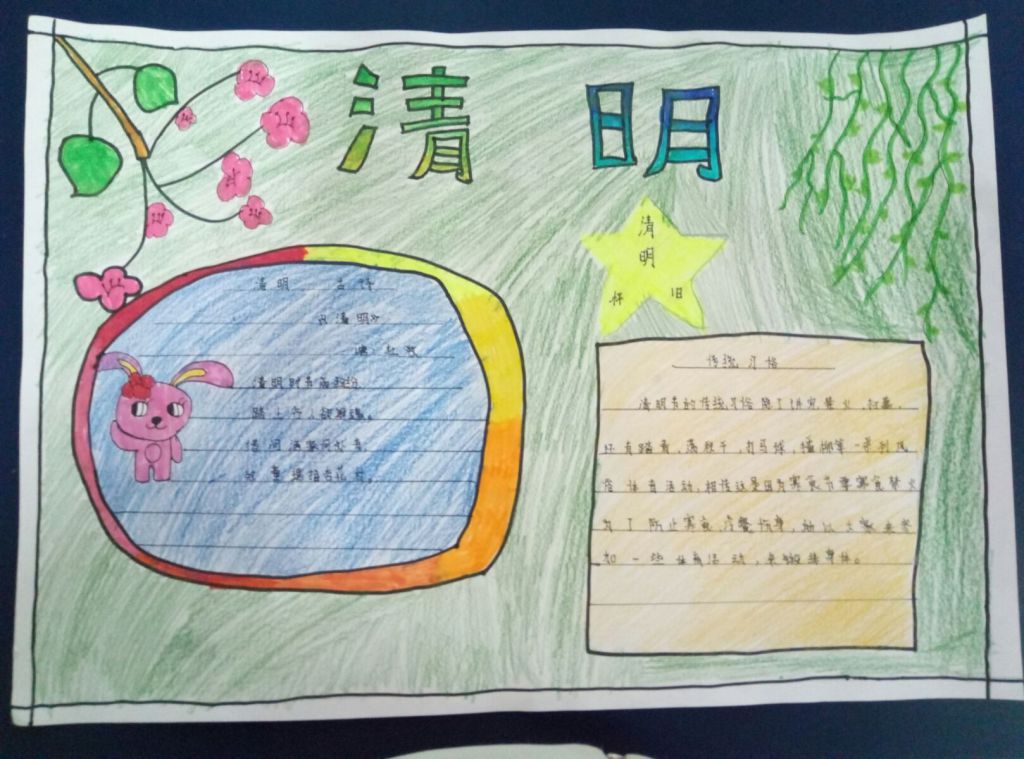 清明
清
明
怀 旧
清明 古诗
《清明》
唐:杜牧
清明时节雨纷纷,
路上行人欲断魂。
借问酒家何处有,
牧童遥指杏花村。
传统习俗
清明节的传统习俗除了讲究禁火、扫墓,
还有踏青、荡秋千、打马球、插柳等一系列风
俗体育活动,相传这是因为寒食节要寒食禁火
为了防止寒食冷餐伤身,所以大家来参
加一些体育活动,来锻炼身体。